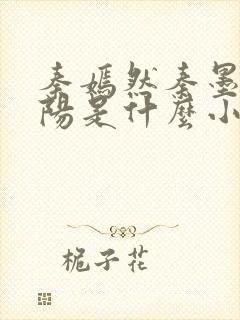 秦嫣然秦墨
阳是什麼小
栀子花